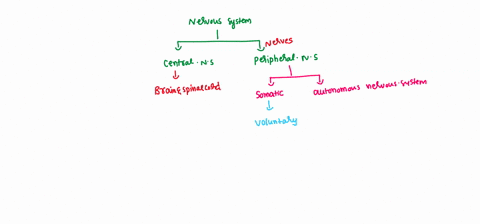 Nervous system
Nerves
Central. N.S
Peripheral. N.S
Brain & spinal cord
Somatic
autonomous nervous system
Voluntary